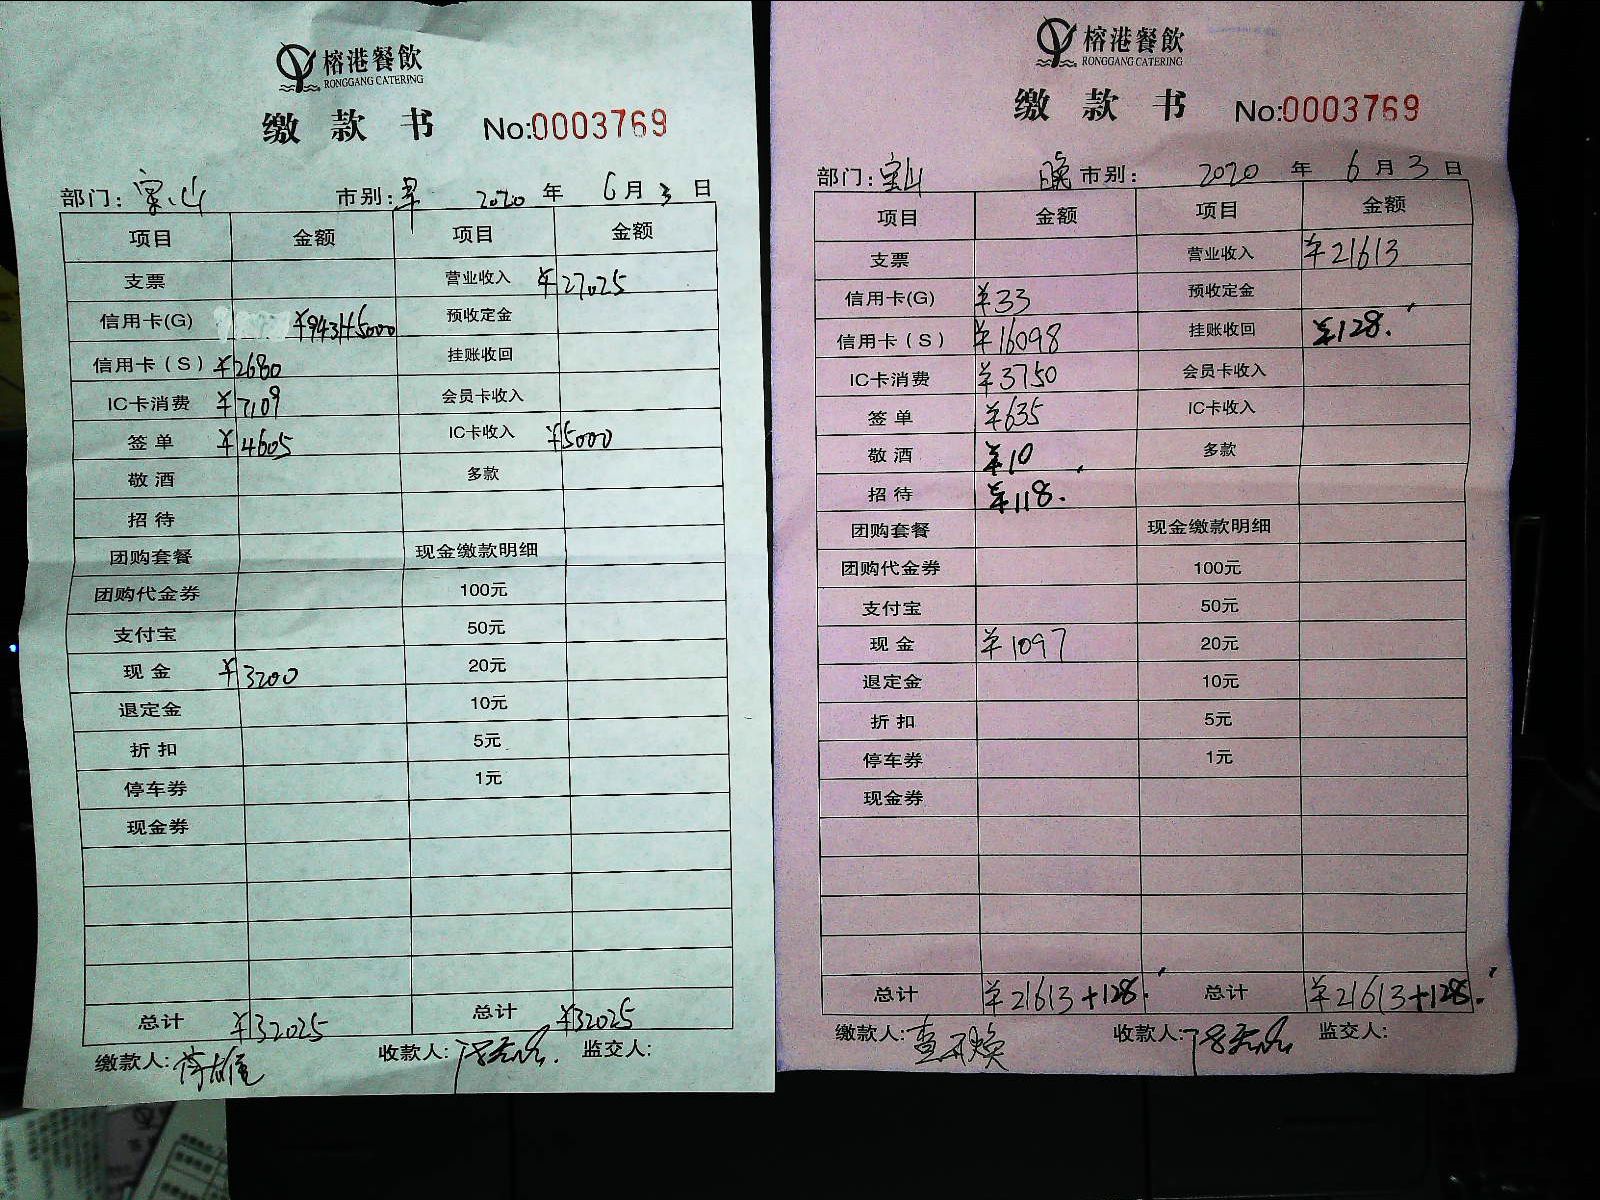 榕港餐飲
RONGGANG CATERING
缴款书 No:0003769
部门: 宝山 市别: 早 2020 年 6 月 3 日
项目 金额 项目 金额
支票 营业收入 ¥27025
信用卡(G) ¥9431+5000 预收定金
信用卡(S) ¥2680 挂账收回
IC卡消费 ¥7109 会员卡收入
签单 ¥4605 IC卡收入 ¥5000
敬酒 多款
招待
团购套餐 现金缴款明细
团购代金券 100元
支付宝 50元
现金 ¥3200 20元
退定金 10元
折扣 5元
停车券 1元
现金券
总计 ¥32025 总计 ¥32025
缴款人: 收款人: 监交人:
榕港餐飲
RONGGANG CATERING
缴款书 No:0003769
部门: 宝山 晚 市别: 2020 年 6 月 3 日
项目 金额 项目 金额
支票 营业收入 ¥21613
信用卡(G) ¥33 预收定金
信用卡(S) ¥16098 挂账收回 ¥128.
IC卡消费 ¥3750 会员卡收入
签单 ¥635 IC卡收入
敬酒 ¥10 多款
招待 ¥118.
团购套餐 现金缴款明细
团购代金券 100元
支付宝 50元
现金 ¥1097 20元
退定金 10元
折扣 5元
停车券 1元
现金券
总计 ¥21613+128. 总计 ¥21613+128.
缴款人: 收款人: 监交人: